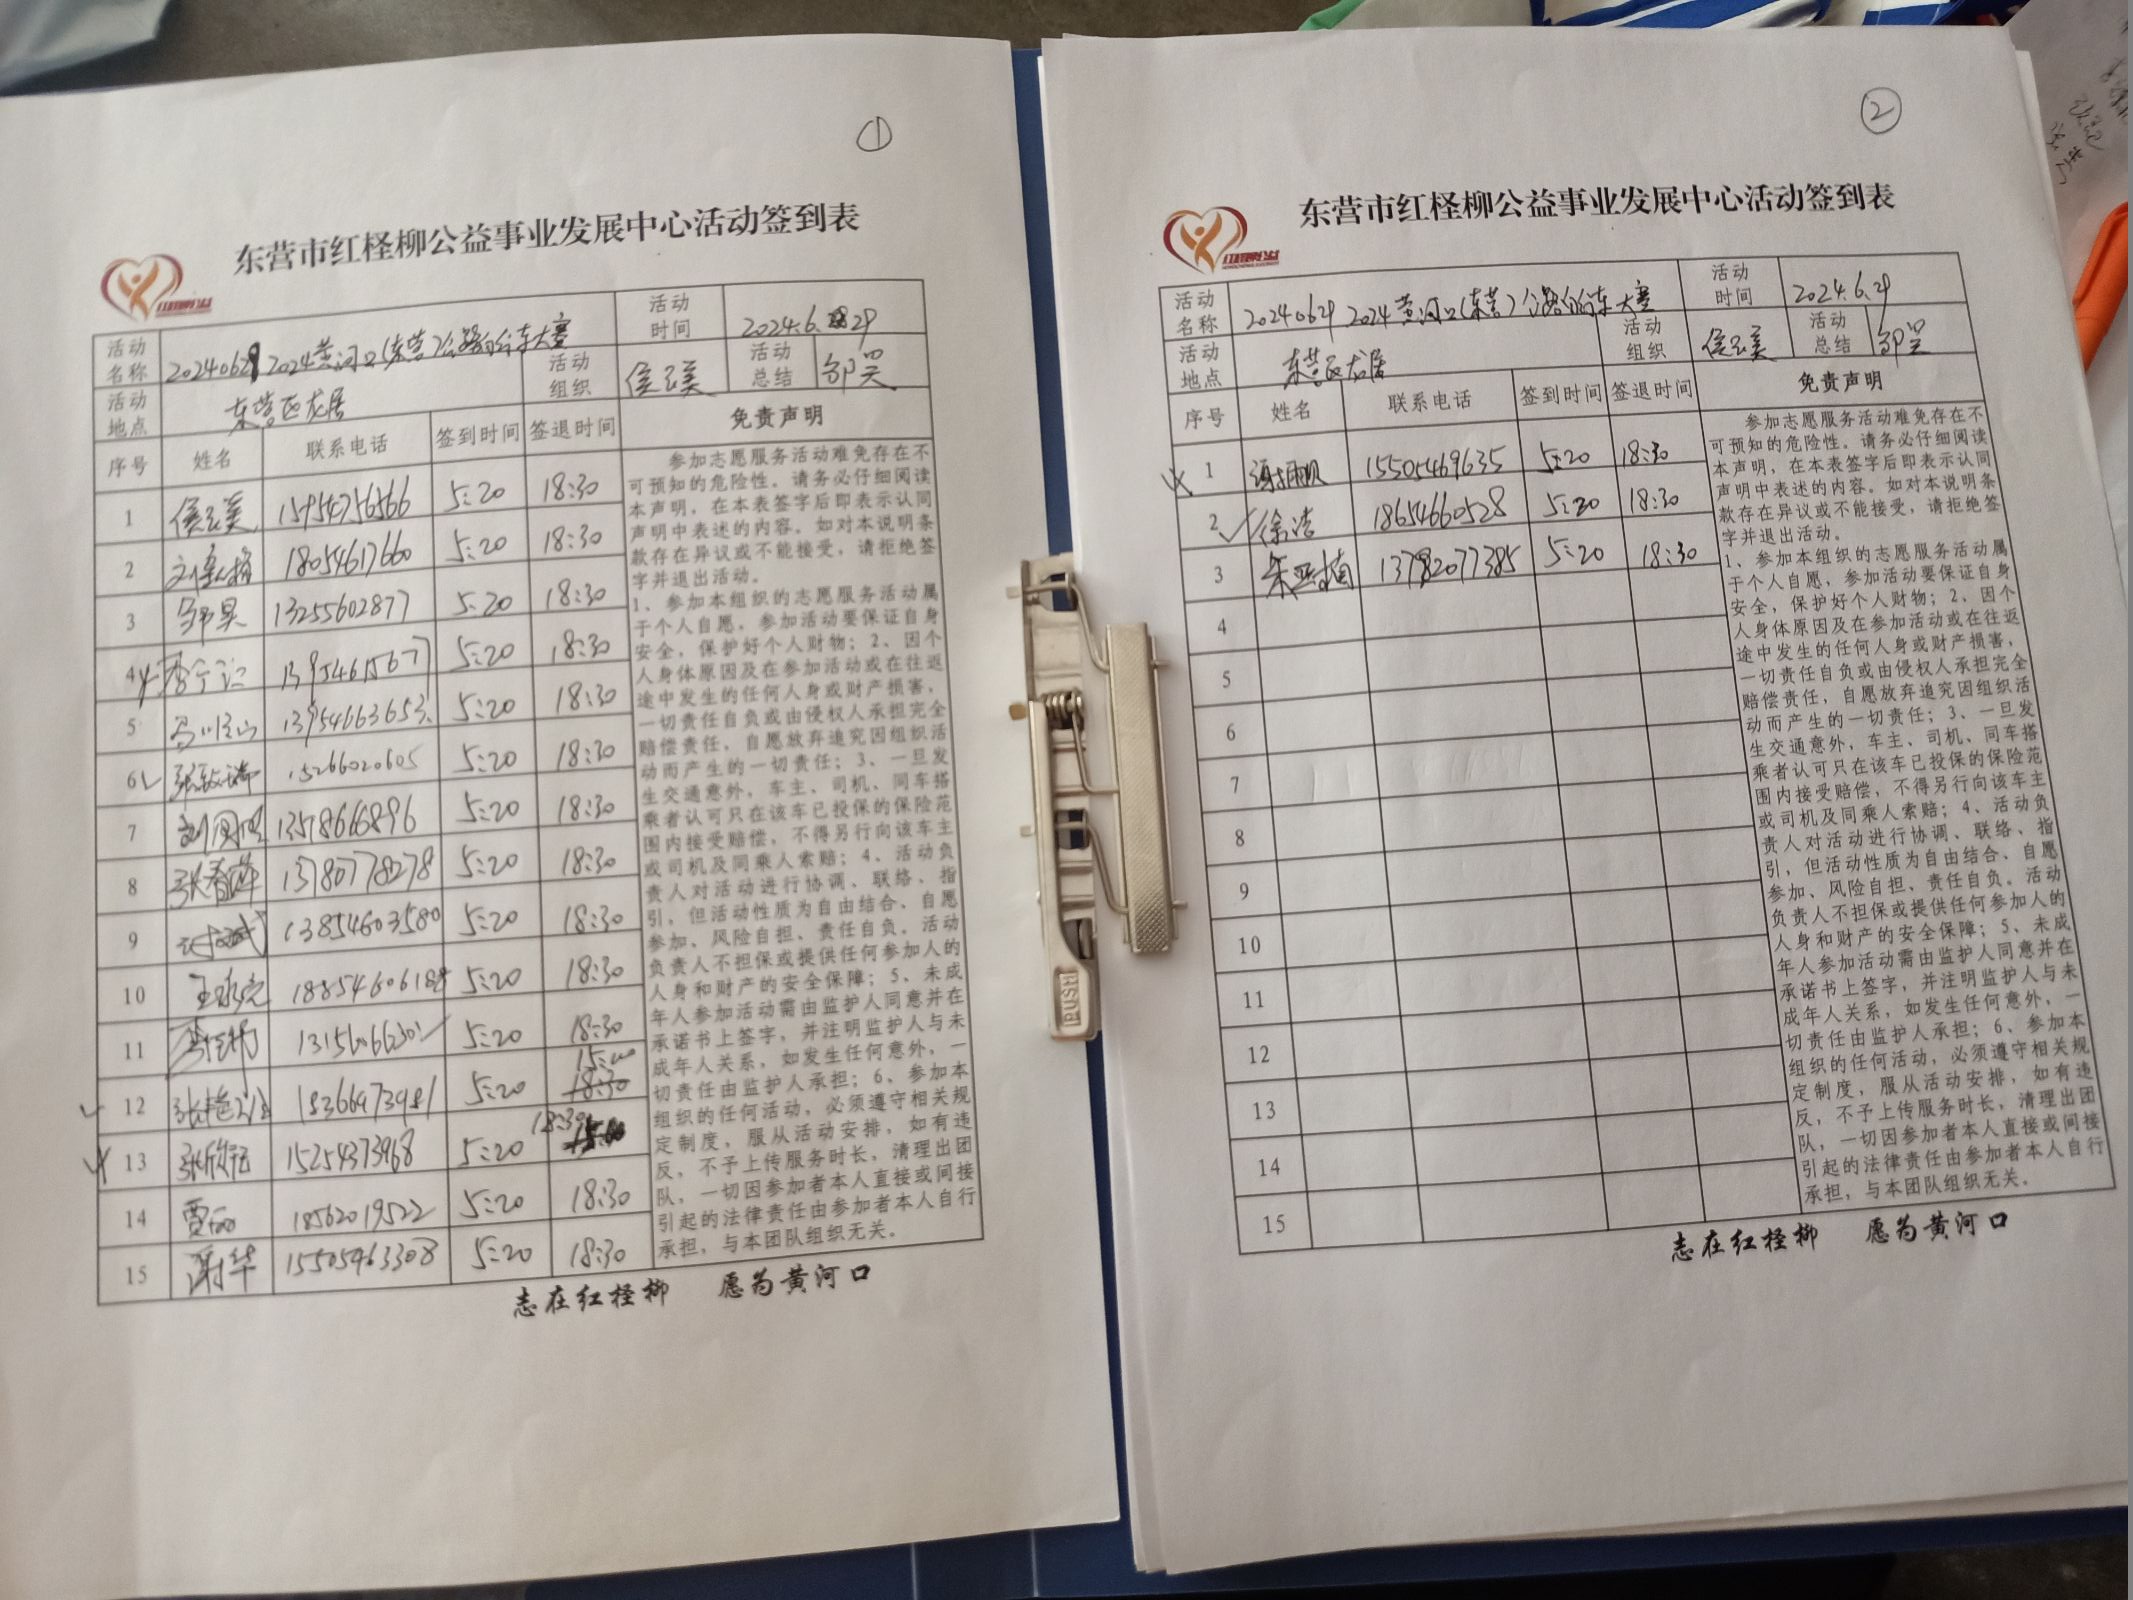 ①
东营市红柽柳公益事业发展中心活动签到表
红柽柳公益
活动名称 20240629 2024黄河口(东营)公路自行车大赛 活动时间 2024.6.29
活动地点 东营区龙居 活动组织 侯玉美 活动总结 邹昊
序号 姓名 联系电话 签到时间 签退时间 免责声明
1 侯玉美 15954756566 5:20 18:30
2 18054617660 5:20 18:30
3 邹昊 13255602877 5:20 18:30
4 13954615677 5:20 18:30
5 13954663653 5:20 18:30
6 15266020605 5:20 18:30
7 13518666896 5:20 18:30
8 张春萍 13780778278 5:20 18:30
9 13854603580 5:20 18:30
10 18854606188 5:20 18:30
11 5:20 18:30
12 18366973981 5:20 15:00 18:30
13 15254373968 5:20 18:30 15:00
14 贾 18562019522 5:20 18:30
15 谢华 15505463308 5:20 18:30
参加志愿服务活动难免存在不
可预知的危险性。请务必仔细阅读
本声明，在本表签字后即表示认同
声明中表述的内容。如对本说明条
款存在异议或不能接受，请拒绝签
字并退出活动。
1、参加本组织的志愿服务活动属
于个人自愿，参加活动要保证自身
安全，保护好个人财物；2、因个
人身体原因及在参加活动或在往返
途中发生的任何人身或财产损害，
一切责任自负或由侵权人承担完全
赔偿责任，自愿放弃追究因组织活
动而产生的一切责任；3、一旦发
生交通意外，车主、司机、同车搭
乘者认可只在该车已投保的保险范
围内接受赔偿，不得另行向该车主
或司机及同乘人索赔；4、活动负
责人对活动进行协调、联络、指
引，但活动性质为自由结合、自愿
参加、风险自担、责任自负。活动
负责人不担保或提供任何参加人的
人身和财产的安全保障；5、未成
年人参加活动需由监护人同意并在
承诺书上签字，并注明监护人与未
成年人关系，如发生任何意外，一
切责任由监护人承担；6、参加本
组织的任何活动，必须遵守相关规
定制度，服从活动安排，如有违
反，不予上传服务时长，清理出团
队，一切因参加者本人直接或间接
引起的法律责任由参加者本人自行
承担，与本团队组织无关。
志在红柽柳 愿为黄河口
PUSH
②
东营市红柽柳公益事业发展中心活动签到表
红柽柳公益
活动名称 20240629 2024黄河口(东营)公路自行车大赛 活动时间 2024.6.29
活动地点 东营区龙居 活动组织 侯玉美 活动总结 邹昊
序号 姓名 联系电话 签到时间 签退时间 免责声明
1 15505469635 5:20 18:30
2 徐洁 18654660528 5:20 18:30
3 13782077385 5:20 18:30
4
5
6
7
8
9
10
11
12
13
14
15
参加志愿服务活动难免存在不
可预知的危险性。请务必仔细阅读
本声明，在本表签字后即表示认同
声明中表述的内容。如对本说明条
款存在异议或不能接受，请拒绝签
字并退出活动。
1、参加本组织的志愿服务活动属
于个人自愿，参加活动要保证自身
安全，保护好个人财物；2、因个
人身体原因及在参加活动或在往返
途中发生的任何人身或财产损害，
一切责任自负或由侵权人承担完全
赔偿责任，自愿放弃追究因组织活
动而产生的一切责任；3、一旦发
生交通意外，车主、司机、同车搭
乘者认可只在该车已投保的保险范
围内接受赔偿，不得另行向该车主
或司机及同乘人索赔；4、活动负
责人对活动进行协调、联络、指
引，但活动性质为自由结合、自愿
参加、风险自担、责任自负。活动
负责人不担保或提供任何参加人的
人身和财产的安全保障；5、未成
年人参加活动需由监护人同意并在
承诺书上签字，并注明监护人与未
成年人关系，如发生任何意外，一
切责任由监护人承担；6、参加本
组织的任何活动，必须遵守相关规
定制度，服从活动安排，如有违
反，不予上传服务时长，清理出团
队，一切因参加者本人直接或间接
引起的法律责任由参加者本人自行
承担，与本团队组织无关。
志在红柽柳 愿为黄河口